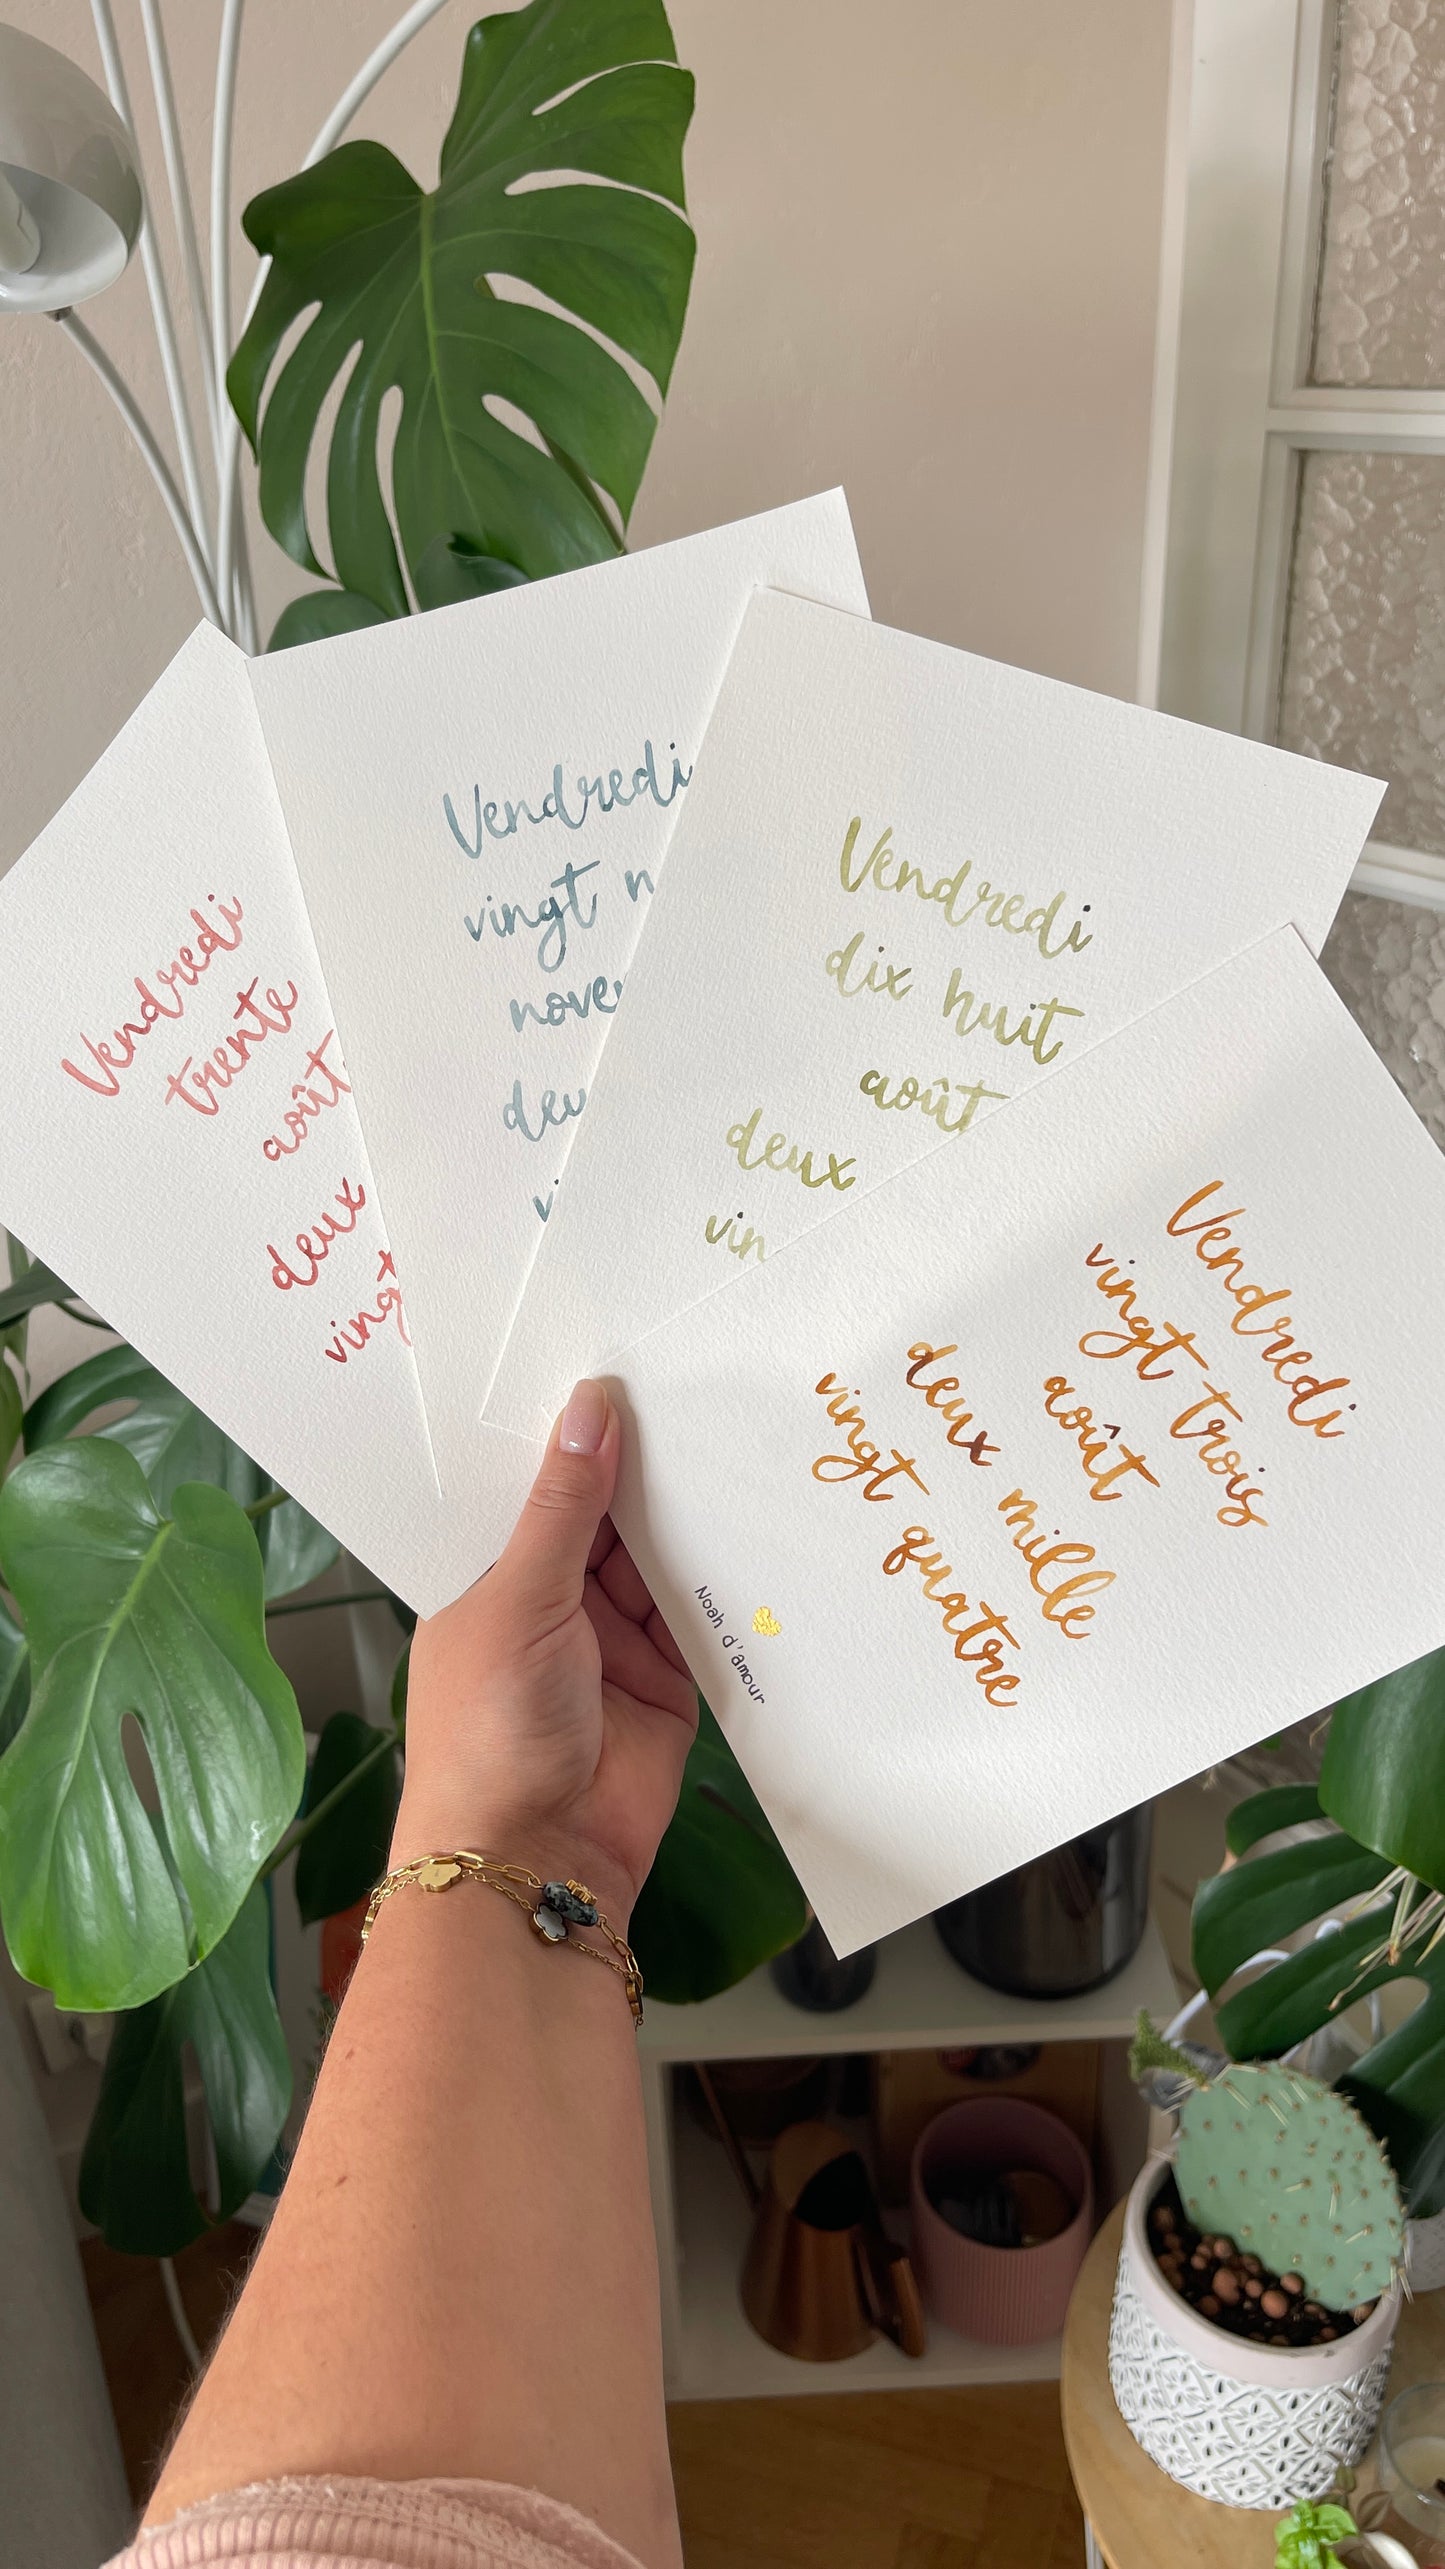 Vendredi
trente
août
deux
vingt
Vendredi
vingt
Vendredi
dix huit
août
deux
Vendredi
vingt trois
août
deux mille
vingt quatre
Noah d'amour